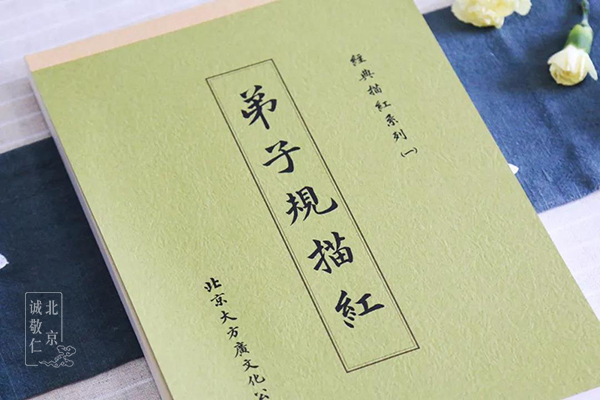 經典描紅系列(一)
弟子規描紅
北京大方廣文化公
北京
诚敬仁